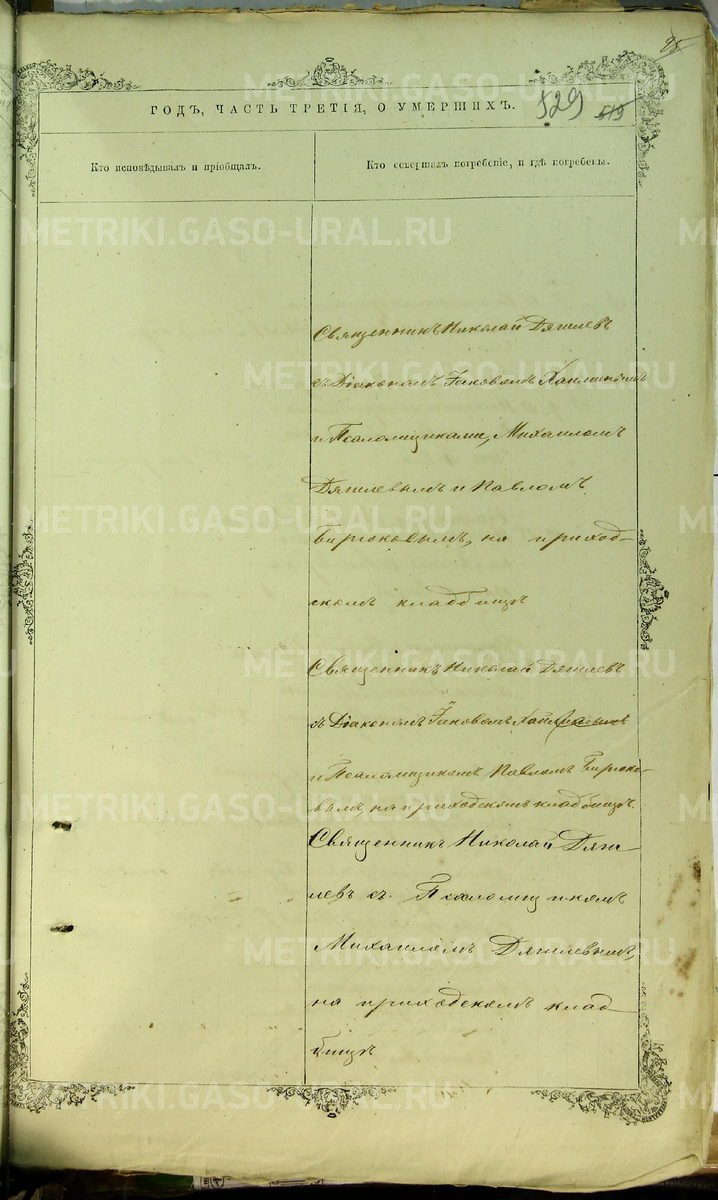 85
ГОДЪ, ЧАСТЬ ТРЕТІЯ, О УМЕРШИХЪ.
529 513
Кто исповѣдывалъ и пріобщалъ.
Кто совершалъ погребеніе, и гдѣ погребены.
Священникъ Николай Дягилевъ
съ Діакономъ Іаковомъ
и Псаломщиками, Михаиломъ
Дягилевымъ и Павломъ
Бирюковымъ, на приход-
скомъ кладбищѣ
Священникъ Николай Дягилевъ
съ Діакономъ Іаковомъ
и Псаломщикомъ Павломъ Бирюко-
вымъ, на приходскомъ кладбищѣ.
Священникъ Николай Дяги
левъ съ Псаломщикомъ
Михаиломъ Дягилевымъ,
на приходскомъ клад
бищѣ
METRIKI.GASO-URAL.RU